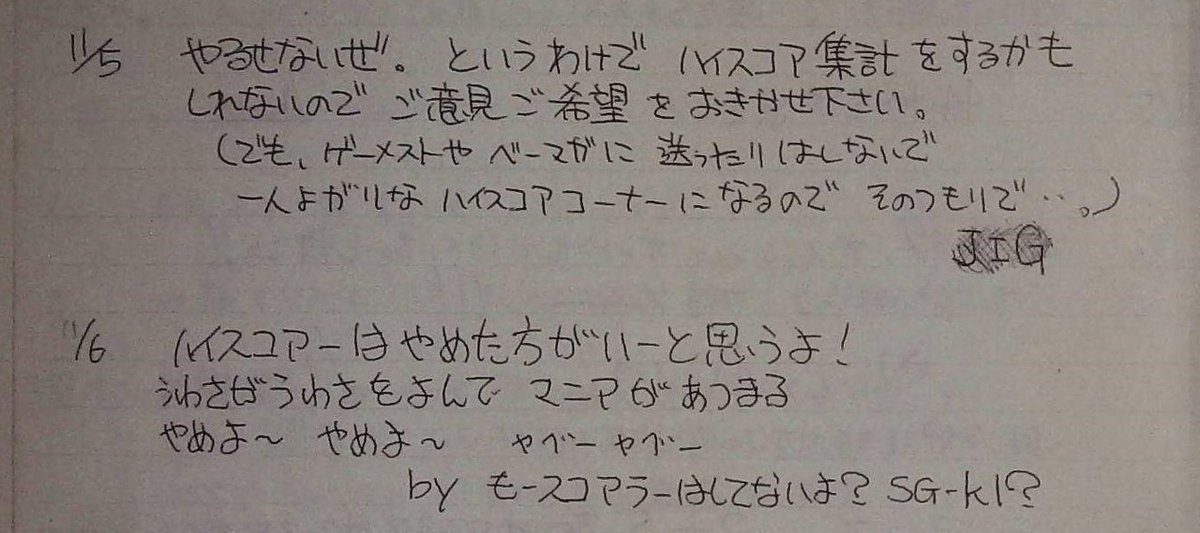 11/5 やるせないぜ。というわけで ハイスコア集計をするかも
しれないので ご意見ご希望をおきかせ下さい。
(でも、ゲーメストや ベーマガに 送ったりはしないで
一人よがりな ハイスコアコーナーになるので そのつもりで…。)
JIG
11/6 ハイスコアーはやめた方がいーと思うよ!
うわさがうわさをよんで マニアがあつまる
やめよ〜 やめよ〜 ヤベーヤベー
by もースコアラーはしてないよ? SG-K1?